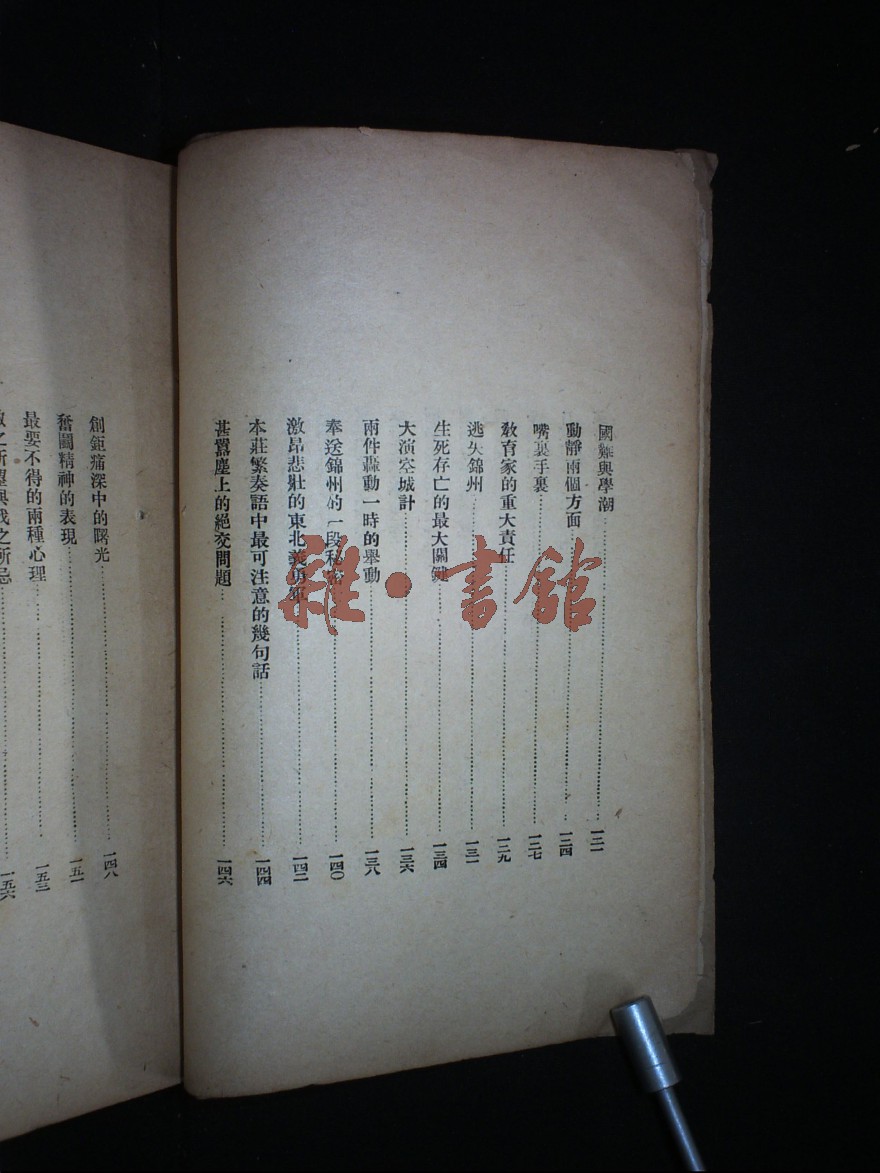 國難與學潮……一二一
動靜兩個方面……一二四
嘴裏手裏……一二七
敎育家的重大責任……一二九
逃失錦州……一三一
生死存亡的最大關鍵……一三四
大演空城計……一三六
兩件轟動一時的舉動……一三八
奉送錦州的一段秘密……一四〇
激昂悲壯的東北義勇軍……一四二
本莊繁奏語中最可注意的幾句話……一四四
甚囂塵上的絕交問題……一四六
創鉅痛深中的曙光……一四八
奮鬭精神的表現……一五一
最要不得的兩種心理……一五三
敵之所望與我之所忌……一五六
雜·書館